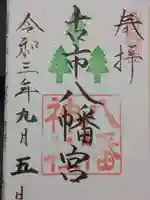 奉拝
古市八幡宮
令和三年九月五日